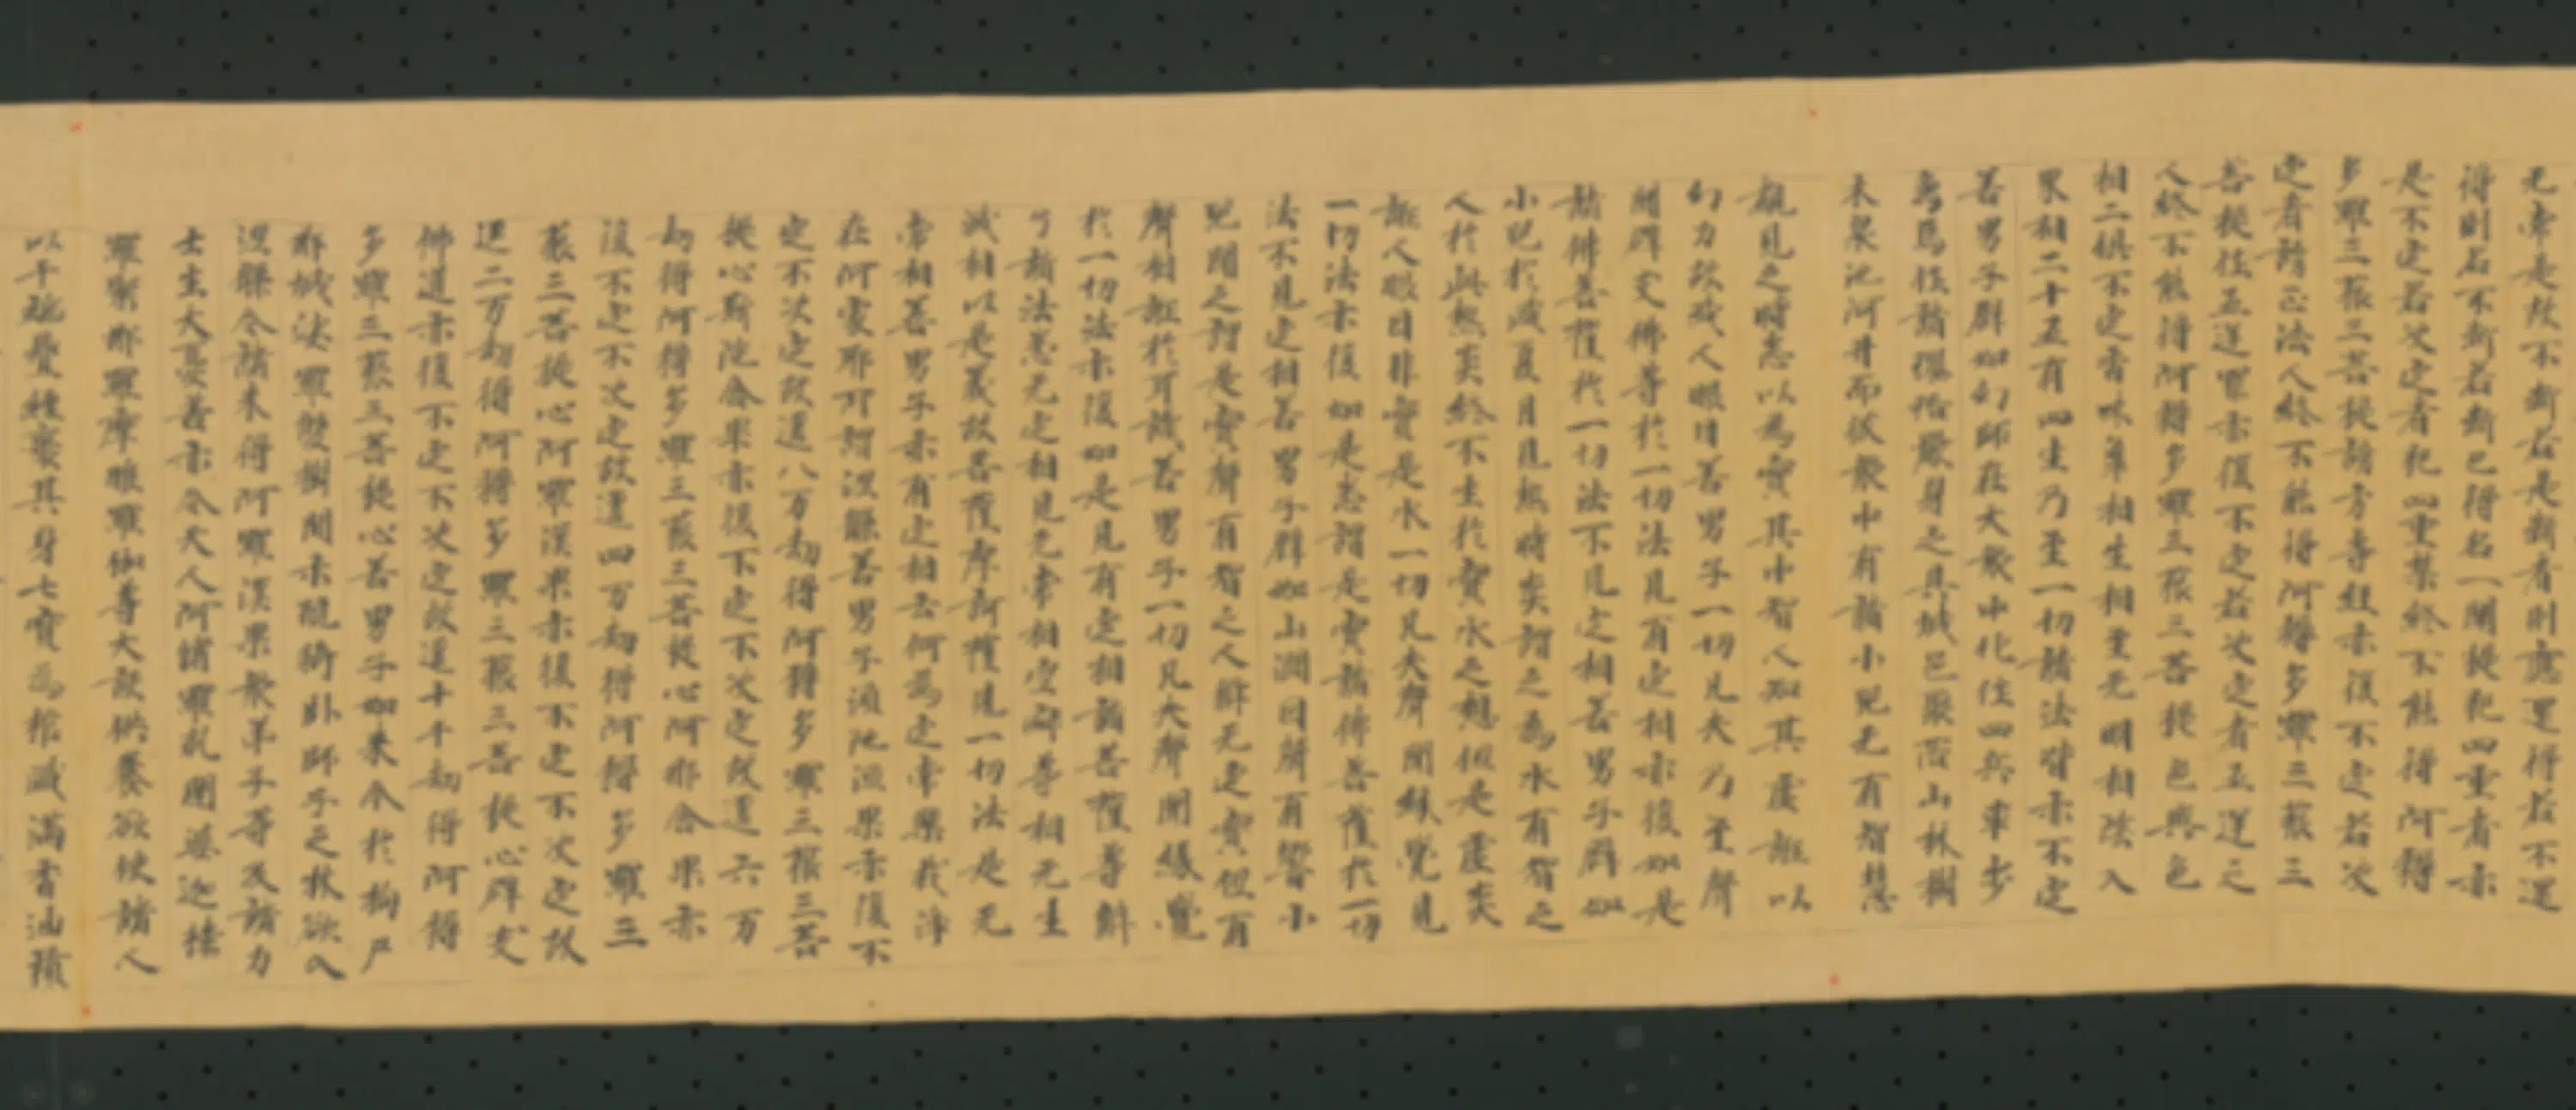 无常是故不斷若是斷者則應還得若不還
得則名不斷若斷已得名一闡提犯四重者亦
是不定若決定者犯四重禁終不能得阿耨
多羅三藐三菩提謗方等經亦復不定若決
定者謗正法人終不能得阿耨多羅三藐三
菩提住五逆罪亦復不定若決定者五逆之
人終不能得阿耨多羅三藐三菩提色與色
相二俱不定香味等相生相至无明相陰入
界相二十五有四生乃至一切諸法皆亦不定
善男子辟如幻師在大衆中化住四兵車步
鳥馬住諸瓔珞嚴身之具城邑聚落山林樹
木泉池河井而彼衆中有諸小兒无有智慧
覩見之時悉以為實其中智人知其虛誑以
幻力故或人眼目善男子一切凡夫乃至聲
聞辟支佛等於一切法見有定相亦復如是
諸佛菩薩於一切法不見定相善男子辟如
小兒於盛夏月見熱時炎謂之為水有智之
人於此熱炎終不生於實水之想但是虛炎
誑人眼目非實是水一切凡夫聲聞緣覺見
一切法亦復如是悉謂是實諸佛菩薩於一切
法不見定相善男子辟如山澗因聲有響小
兒聞之謂是實聲有智之人解无定實但有
聲相誑於耳識善男子一切凡夫聲聞緣覺
於一切法亦復如是見有定相諸菩薩等解
了諸法悉无定相見无常相空寂等相无生
滅相以是義故菩薩摩訶薩見一切法是无
常相善男子亦有定相云何為定常樂我淨
在何處耶所謂涅槃善男子須陀洹果亦復不
定不決定故逕八万劫得阿耨多羅三藐三菩
提心斯陀含果亦復不定不決定故逕六万
劫得阿耨多羅三藐三菩提心阿那含果亦
復不定不決定故逕四万劫得阿耨多羅三
藐三菩提心阿羅漢果亦復不定不決定故
逕二万劫得阿耨多羅三藐三菩提心辟支
佛道亦復不定不決定故逕十千劫得阿耨
多羅三藐三菩提心善男子如來今於拘尸
那城娑羅雙樹閒示現倚臥師子之牀欲入
涅槃令諸未得阿羅漢果衆弟子等及諸力
士生大憂苦亦令天人阿脩羅乹闥婆迦樓
羅緊那羅摩睺羅伽等大設供養欲使諸人
以千疏疊纏裹其身七寶為棺滅滿香油積